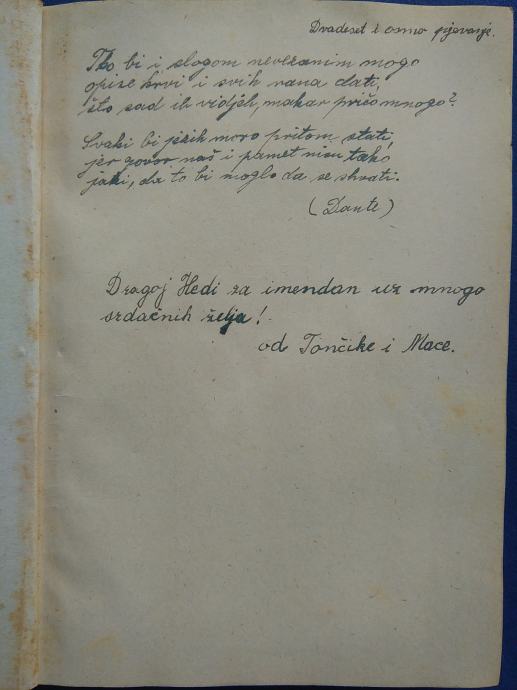 Dvadeset i osmo pjevanje.
Tko bi i slogom nevezanim mogo
opise krvi i svih rana dati,
što sad ih vidjeh, makar pričo mnogo?
Svaki bi jezik moro pritom stati,
jer govor naš i pamet nisu tako
jaki, da to bi moglo da se shvati.
(Dante)
Dragoj Hedi za imendan uz mnogo
srdačnih želja!
od Tončike i Mace.